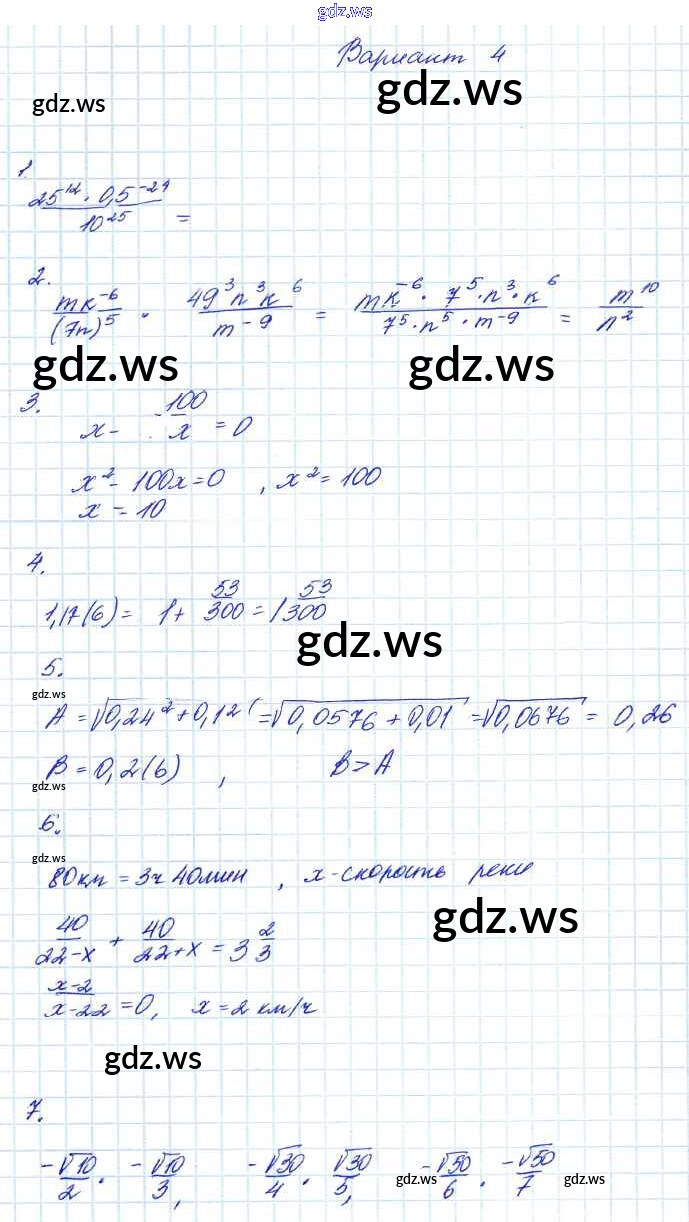 gdz.ws
Вариант 4
gdz.ws
gdz.ws
1.
25^12 · 0,5^-24 / 10^25 =
2.
mк^-6 / (7n)^5 · 49^3 n^3 к^6 / m^-9 = mк^-6 · 7^5 · n^3 · к^6 / 7^5 · n^5 · m^-9 = m^10 / n^2
gdz.ws
gdz.ws
3.
x - 100/x = 0
x^2 - 100x = 0 , x^2 = 100
x = 10
4.
1,17(6) = 1 + 53/300 = 1 53/300
gdz.ws
5.
gdz.ws
A = √0,24^2 + 0,1^2 = √0,0576 + 0,01 = √0,0676 = 0,26
B = 0,2(6) , B > A
gdz.ws
6.
gdz.ws
80км = 3ч 40мин , x - скорость реки
gdz.ws
40/22-x + 40/22+x = 3 2/3
x-2/x-22 = 0, x = 2 км/ч
gdz.ws
7.
-√10/2 · -√10/3, -√30/4 · √30/5, -√50/6 · -√50/7
gdz.ws
gdz.ws